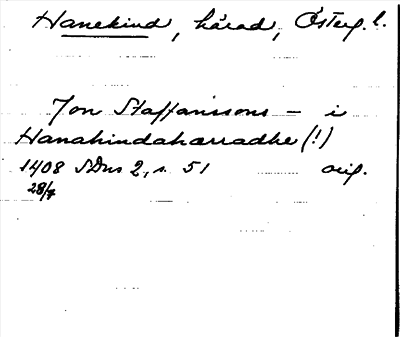 Hanekind, härad, Österg. l.
Jon Staffanssons – i
Hanahindahærradhe (!)
1408 SDns 2, s. 51 orig.
28/7